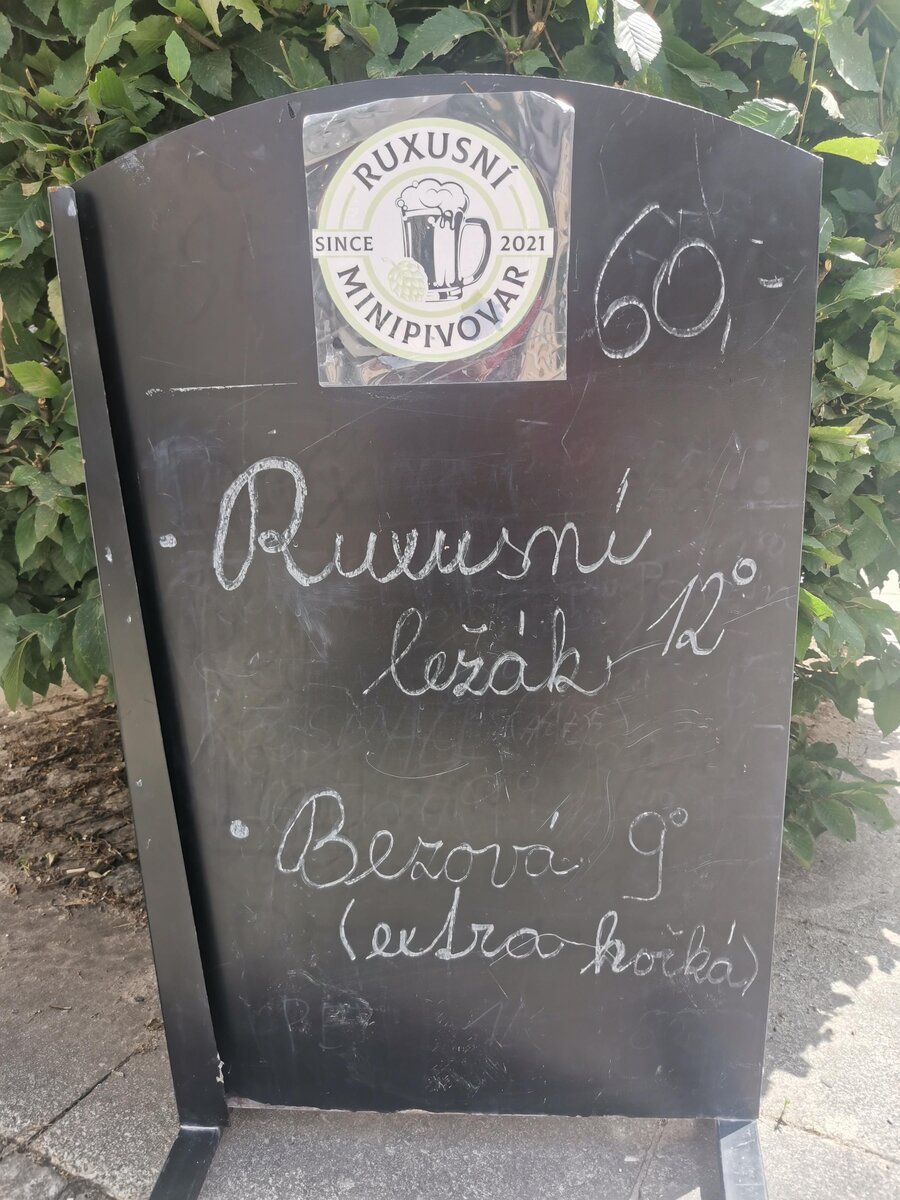 RUXUSNÍ
SINCE 2021
MINIPIVOVAR
60,-
Ruxusní
ležák 12°
Bezová 9°
(extra hořká)